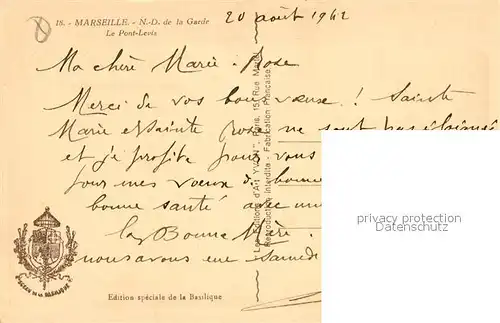 18. - MARSEILLE. - N.-D. de la Garde
Le Pont-Levis
20 août 1962
Ma chère Marie-Rose
Merci de vos bons vœux ! Sainte
Marie et Sainte Rose ne sont pas éloignées
et je profite pour vous
pour mes vœux de bonne
bonne santé avec un
la Bonne Mère.
nous avons eu samedi
Les Editions d'Art YVON", Paris, 15, Rue Martel
Reproduction Interdite - Fabrication Française
privacy protection
Datenschutz
Edition spéciale de la Basilique